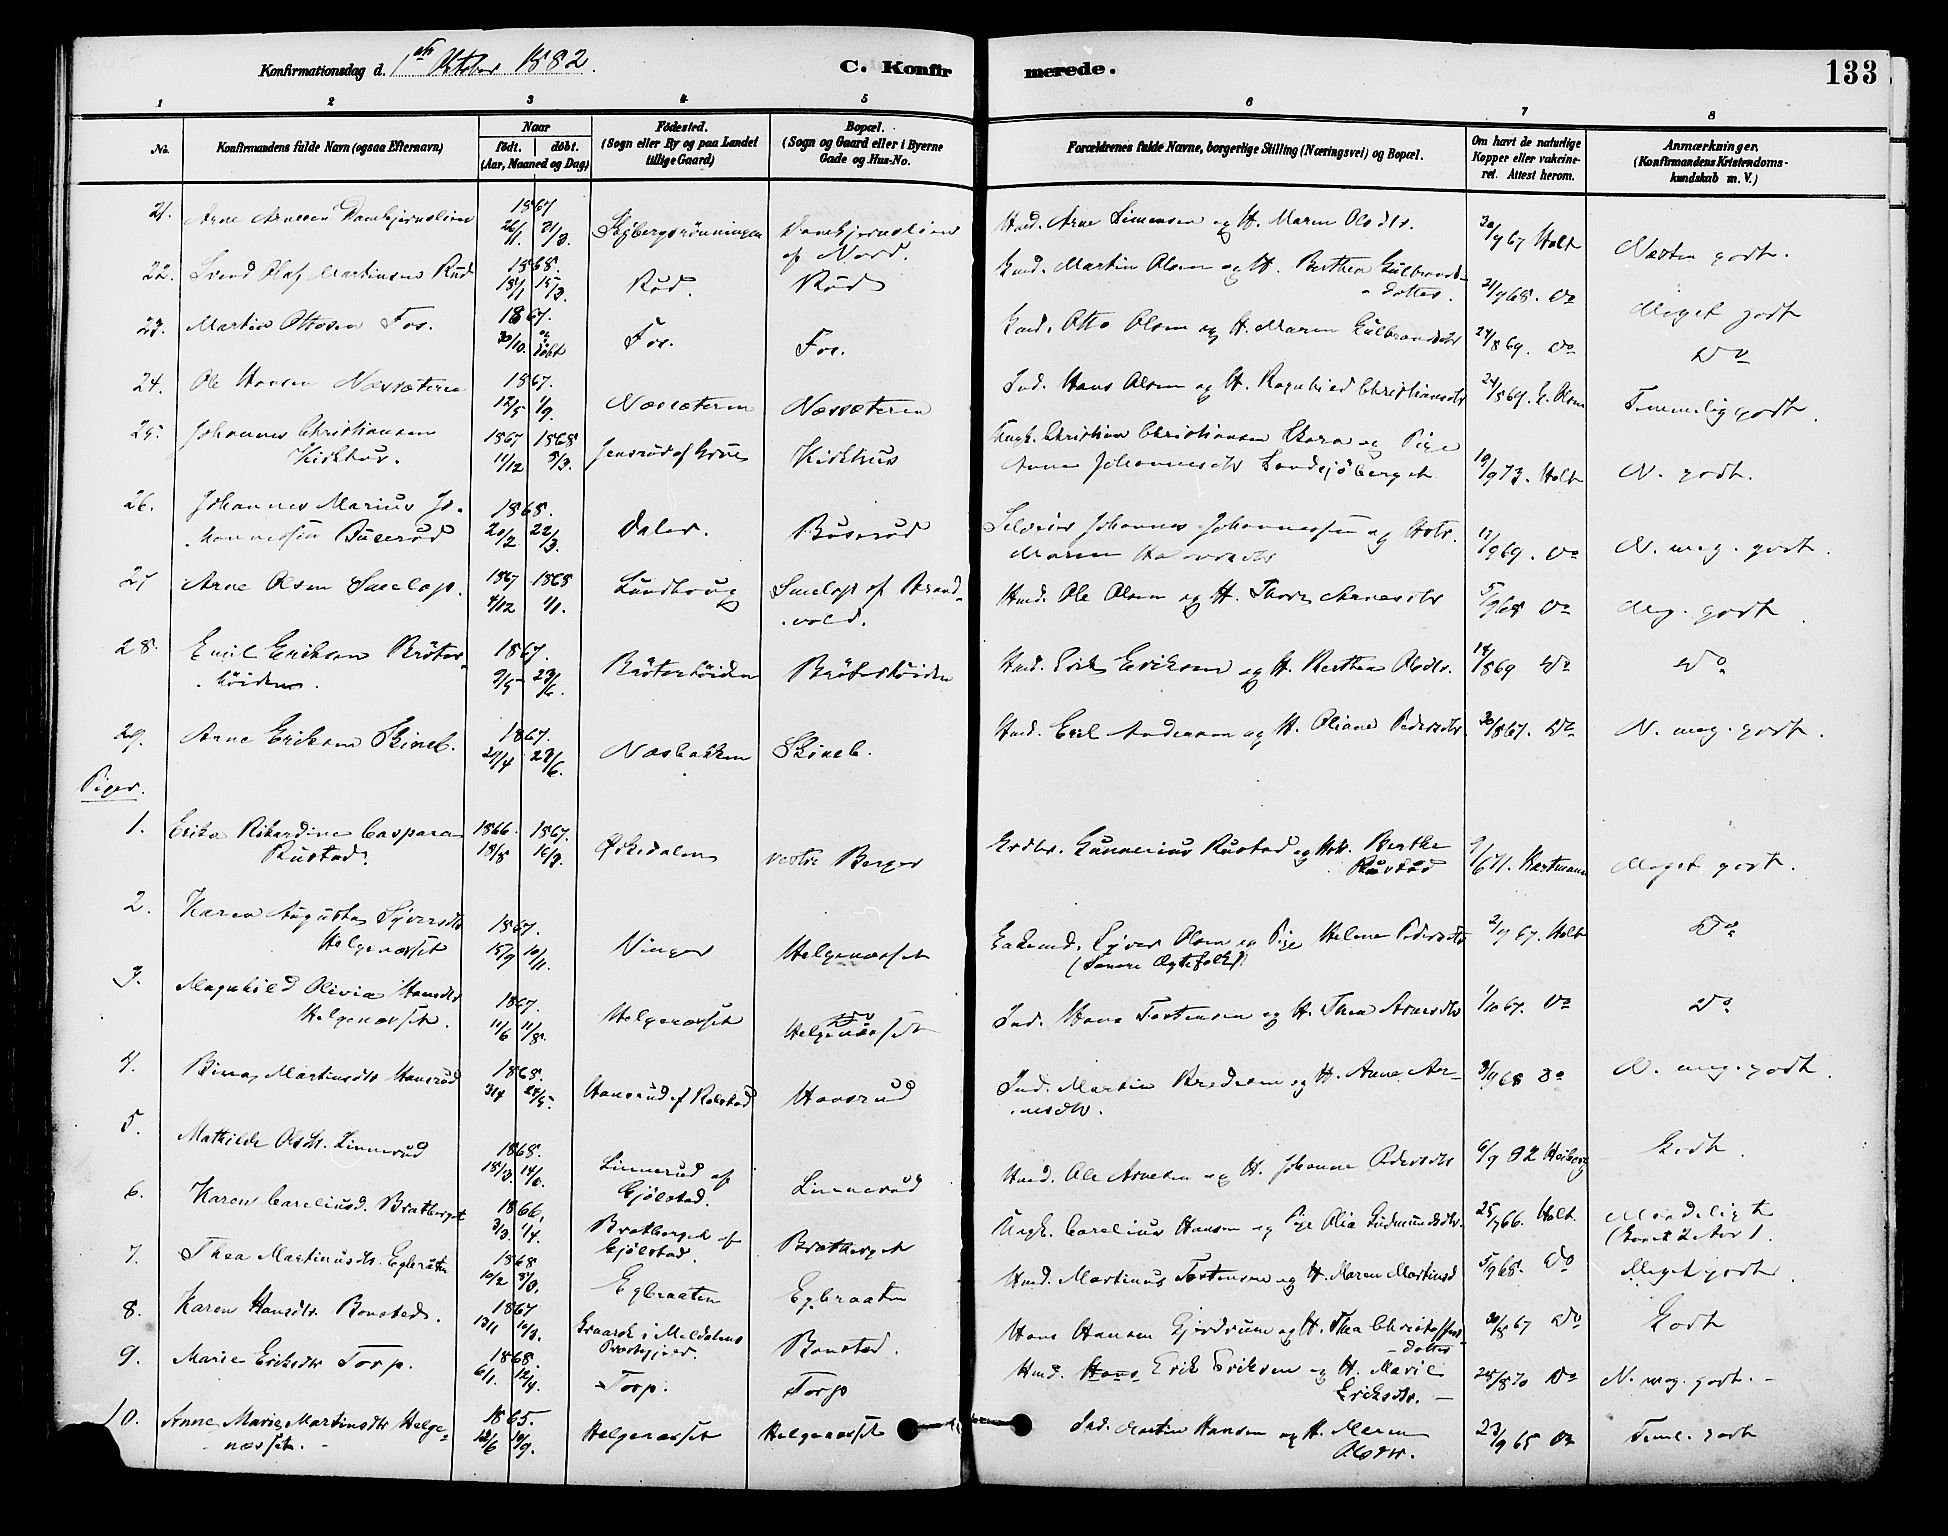 Konfirmationsdag d. 1ste Oktober 1882.
C. Konfirmerede.
133
1 2 3 4 5 6 7 8
No.
Konfirmandens fulde Navn (ogsaa Efternavn)
Naar
født. døbt.
(Aar, Maaned og Dag)
Fødested.
(Sogn eller By og paa Landet
tillige Gaard)
Bopæl.
(Sogn og Gaard eller i Byerne
Gade og Hus-No.
Forældrenes fulde Navne, borgerlige Stilling (Næringsvei) og Bopæl.
Om havt de naturlige
Kopper eller vakcine-
ret. Attest herom.
Anmærkninger.
(Konfirmandens Kristendoms-
kundskab m. V.)
21. Arne Arnesen 1867 Hmd. Arne Simensen og H. Maren Olsdtr. Holt Næsten godt.
af Nord.
22. Svend Olaf Martinsen Rud 1868. Rud. Rud Martin Olsen og H. Berthea Gulbrands-
dotter. Do Meget godt
23. Martin Ottosen Fos. 1867. 30/10. Fos. Fos. Otto Olsen og H. Maren Gulbrandsdtr 24/8 69. Do Do
24. Ole Hansen Næssæteren 1867. 12/5 Næssæteren Næssæteren Ind. Hans Olsen og H. Ragnhild Christiansdtr 24/8 69. Olsen Temmelig godt.
25. Johannes Christiansen
Kirkhus. 1867 1868 11/12 8/3. Kirkhus Ungk. Christian Christiansen og Pige
Anna Johannesdtr 10/9 73. Holt N. godt.
26. Johannes Marius Jo-
hannessen Buserud 1868. 20/2 22/3. Daler. Buserud Johannes Johannessen og Hstr.
Maren Halvorsdtr 11/9 69. Do N. meg. godt.
27 Arne Olsen Smelop. 1867 1868 4/12 1/1. Lundhoug Smelop af Brand-
vold. Hmd. Ole Olsen og H. Thore Arnesdtr 5/9 68 Do Meg. godt
28. Emil Eriksen Bröter-
höiden. 1867. Bröterhöiden Bröterhöiden Hmd. Erik Eriksen og H. Berthea Olsdtr. 14/8 69 Do Do
29. Arne Eriksen Skineb. 1867. 29/4 23/6. Næsbakken Skineb. Hmd. Erik Andersen og H. Oliane Pedersdtr 30/8 67. Do N. meg. godt.
Piger.
1. Erika Rikardine Caspara
Rustad. 1866. 1867. Öskedalen vestre Berger Gunnerius Rustad og Hstr. Berthe
Rustad Hartmann Meget godt.
2. Karen Augusta Syversdtr
Helgenæsset 1867. 15/9 10/11. Vinger Helgenæsset Syver Olsen og Pige Helene Pedersdtr
(Senere Ægtefolk) 2/9 67. Holt Do
3. Magnhild Olivia Hansdtr
Helgenæsset. 1867. 11/6 11/8. Helgenæsset Helgenæsset Ind. Hans Torstensen og H. Thea Arnesdtr 1/10 67. Do Do
4. Bina Martinsdtr Hansrud 1868. 3/4 24/5. Hansrud af Rolstad Hansrud Ind. Martin Bredesen og H. Anne Ar-
nesdtr. 3/9 68 Do N. meg. godt.
5. Mathilde Olsdtr. Linnerud 1868. 15/3. 14/6. Linnerud af
Gjölstad. Linnerud Hmd. Ole Arnesen og H. Johanne Pedersdtr 6/9 82 Heiberg Godt.
6. Karen Careliusd. Bratberget 1866. 3/3. 1/4. Bratberget af
Gjölstad. Bratberget Ungk. Carelius Hansen og Pige Olia Gudmundsdtr. 25/9 66. Holt. Maadeligt
7. Thea Martinusdtr. Egbraaten 1868 10/2 8/3. Egbraaten Egbraaten Hmd. Martinus Torstensen og H. Maren Martinsd 5/9 68. Do Meget godt.
8. Karen Hansdtr. Bonsted. 1867 13/1 10/3. i Meldalens
Præstegjeld. Bonsted. Hans Hansen Gjerdrum og H. Thea Christoffers-
dotter 30/8 67 Do Godt
9. Marie Eriksdtr Torp. 1868. 6/1. 12/4. Torp. Torp Hmd. Erik Eriksen og H. Marie
Eriksdtr. 24/8 70 Do N. meg. godt.
10. Anne Marie Martinsdtr Helge-
næsset. 1865. Helgenæsset Helgenæsset Ind. Martin Hansen og H. Maren
Olsdtr. 23/9 65 Do Teml. godt